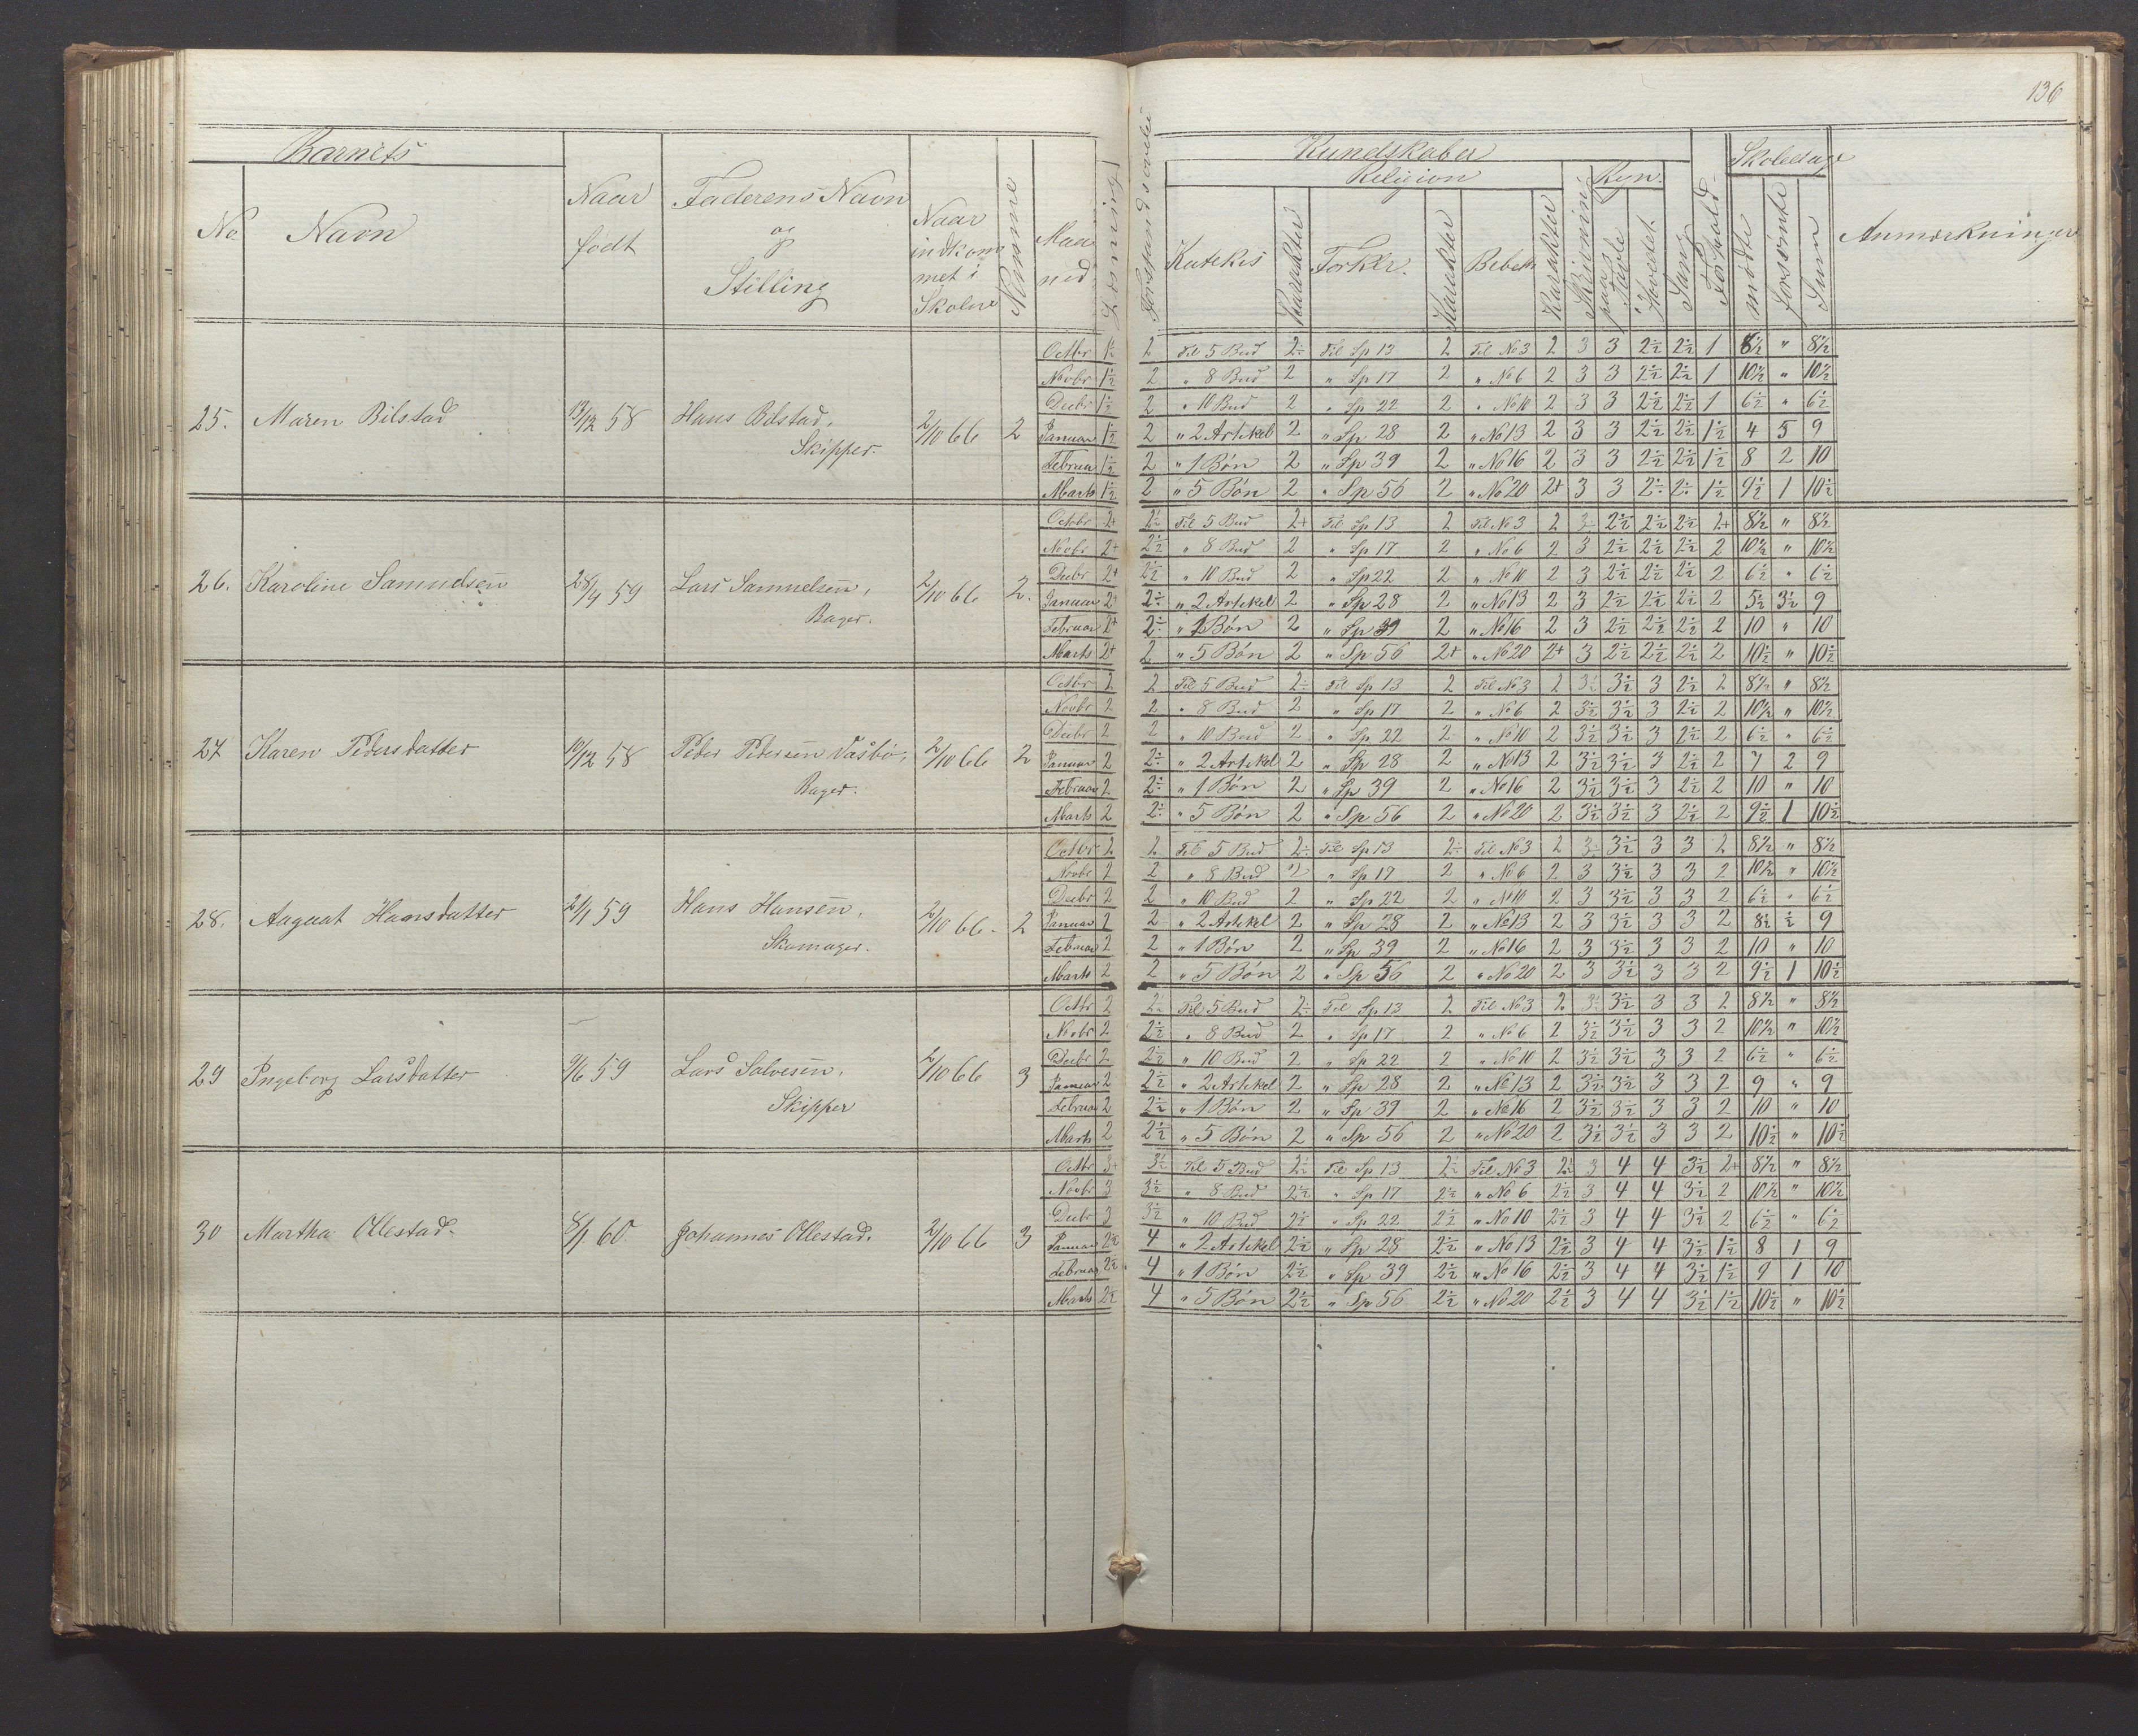 136
Barnets
No
Navn
Naar født
Faderens Navn og Stilling
Naar indkommet i Skolen
Evne
Maaned
Læsning
Forstandsøvelse
Kundskaber
Religion
Katekis
Karakter
Forklr.
Karakter
Bibelh
Karakter
Skrivning
Regn.
paa Tavle
Hovedet
Sang
Forhold
Skoledage
mødte
forsømte
Sum
Anmærkninger
25. Maren Bilstad 13/12 58 Hans Bilstad, Skipper. 2/10 66 2
Octbr 1½ 2 Til 5 Bud 2÷ Til Sp 13 2 Til No 3 2 3 3 2½ 2½ 1 8½ " 8½
Novbr 1½ 2 " 8 Bud 2 " Sp 17 2 " No 6 2 3 3 2½ 2½ 1 10½ " 10½
Decbr 1½ 2 " 10 Bud 2 " Sp 22 2 " No 10 2 3 3 2½ 2½ 1 6½ " 6½
Januar 1½ 2 " 2 Artikel 2 " Sp 28 2 " No 13 2 3 3 2½ 2½ 1½ 4 5 9
Februar 1½ 2 " 1 Bøn 2 " Sp 39 2 " No 16 2 3 3 2½ 2½ 1½ 8 2 10
Marts 1½ 2 " 5 Bøn 2 " Sp 56 2 " No 20 2+ 3 3 2÷ 2÷ 1½ 9½ 1 10½
26. Karoline Samuelsen 28/4 59 Lars Samuelsen, Bager. 2/10 66 2.
Octobr 2+ 2½ Til 5 Bud 2+ Til Sp 13 2 Til No 3 2 3÷ 2½ 2½ 2½ 2+ 8½ " 8½
Novbr 2+ 2½ " 8 Bud 2 " Sp 17 2 " No 6 2 3 2½ 2½ 2½ 2 10½ " 10½
Decbr 2+ 2½ " 10 Bud 2 " Sp 22 2 " No 10 2 3 2½ 2½ 2½ 2 6½ " 6½
Januar 2+ 2÷ " 2 Artikel 2 " Sp 28 2 " No 13 2 3 2½ 2½ 2½ 2 5½ 3½ 9
Februar 2+ 2÷ " 1 Bøn 2 " Sp 39 2 " No 16 2 3 2½ 2½ 2½ 2 10 " 10
Marts 2+ 2 " 5 Bøn 2 " Sp 56 2+ " No 20 2+ 3 2½ 2½ 2½ 2 10½ " 10½
27 Karen Pedersdatter 19/12 58 Peder Pedersen Vasbø, Bager. 2/10 66 2
Octbr 2 2 Til 5 Bud 2÷ Til Sp 13 2 Til No 3 2 3½ 3½ 3 2½ 2 8½ " 8½
Novbr 2 2 " 8 Bud 2 " Sp 17 2 " No 6 2 3½ 3½ 3 2½ 2 10½ " 10½
Decbr 2 2 " 10 Bud 2 " Sp 22 2 " No 10 2 3½ 3½ 3 2½ 2 6½ " 6½
Januar 2 2÷ " 2 Artikel 2 " Sp 28 2 " No 13 2 3½ 3½ 3 2½ 2 7 2 9
Februar 2 2÷ " 1 Bøn 2 " Sp 39 2 " No 16 2 3½ 3½ 3 2½ 2 10 " 10
Marts 2 2÷ " 5 Bøn 2 " Sp 56 2 " No 20 2 3½ 3½ 3 2½ 2 9½ 1 10½
28. Aagaat Hansdatter 21/1 59 Hans Hansen, Skomager. 2/10 66. 2
Octbr 2 2 Til 5 Bud 2÷ Til Sp 13 2÷ Til No 3 2 3÷ 3½ 3 3 2 8½ " 8½
Novbr 2 2 " 8 Bud 2 " Sp 17 2 " No 6 2 3 3½ 3 3 2 10½ " 10½
Decbr 2 2 " 10 Bud 2 " Sp 22 2 " No 10 2 3 3½ 3 3 2 6½ " 6½
Januar 2 2 " 2 Artikel 2 " Sp 28 2 " No 13 2 3 3½ 3 3 2 8½ ½ 9
Februar 2 2 " 1 Bøn 2 " Sp 39 2 " No 16 2 3 3½ 3 3 2 10 " 10
Marts 2 2 " 5 Bøn 2 " Sp 56 2 " No 20 2 3 3½ 3 3 2 9½ 1 10½
29 Ingeborg Larsdatter 9/6 59 Lars Salvesen, Skipper 2/10 66 3
Octbr 2 2½ Til 5 Bud 2÷ Til Sp 13 2 Til No 3 2 3÷ 3½ 3 3 2 8½ " 8½
Novbr 2 2½ " 8 Bud 2 " Sp 17 2 " No 6 2 3½ 3½ 3 3 2 10½ " 10½
Decbr 2 2½ " 10 Bud 2 " Sp 22 2 " No 10 2 3½ 3½ 3 3 2 6½ " 6½
Januar 2 2½ " 2 Artikel 2 " Sp 28 2 " No 13 2 3½ 3½ 3 3 2 9 " 9
Februar 2 2½ " 1 Bøn 2 " Sp 39 2 " No 16 2 3½ 3½ 3 3 2 10 " 10
Marts 2 2½ " 5 Bøn 2 " Sp 56 2 " No 20 2 3½ 3½ 3 3 2 10½ " 10½
30 Martha Ollestad. 8/1 60 Johannes Ollestad. 2/10 66 3
Octbr 3+ 3½ Til 5 Bud 2½ Til Sp 13 2½ Til No 3 2½ 3 4 4 3½ 2+ 8½ " 8½
Novbr 3 3½ " 8 Bud 2½ " Sp 17 2½ " No 6 2½ 3 4 4 3½ 2 10½ " 10½
Decbr 3 3½ " 10 Bud 2½ " Sp 22 2½ " No 10 2½ 3 4 4 3½ 2 6½ " 6½
Januar 2½ 4 " 2 Artikel 2½ " Sp 28 2½ " No 13 2½ 3 4 4 3½ 1½ 8 1 9
Februar 2½ 4 " 1 Bøn 2½ " Sp 39 2½ " No 16 2½ 3 4 4 3½ 1½ 9 1 10
Marts 2½ 4 " 5 Bøn 2½ " Sp 56 2½ " No 20 2½ 3 4 4 3½ 1½ 10½ " 10½